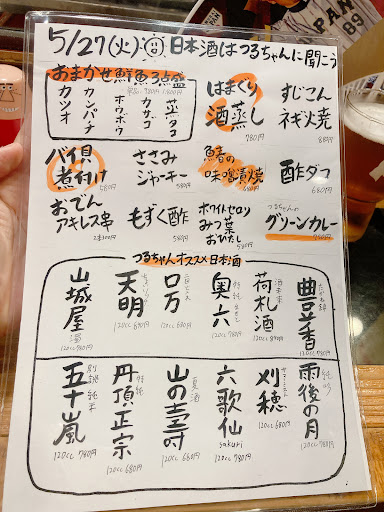 5/27(火) 日 日本酒はつるちゃんに聞こう
おまかせ鮮魚3点盛
カツオ
カンパチ
ホウボウ
カサゴ
蒸ダコ
はまぐり
酒蒸し
780円
すじこん
ネギ火焼
バイ貝
煮付け
580円
ささみ
ジャーキー
味噌漬焼
酢ダコ
680円
おでん
アキレス串
もずく酢
ホワイトセロリ
みつ葉
おひたし
つるちゃんの
グリーンカレー
つるちゃんオススメ日本酒
山城屋
120cc 780円
天明
120cc 680円
ロ万
120cc 680円
奥六
120cc 780円
荷札酒
豊香
120cc 780円
五十嵐
120cc 780円
丹頂正宗
120cc 780円
夏酒
山の壽
120cc 780円
六歌仙
sakuri
120cc 680円
刈穂
120cc 680円
雨後の月
120cc 780円
PAN
89